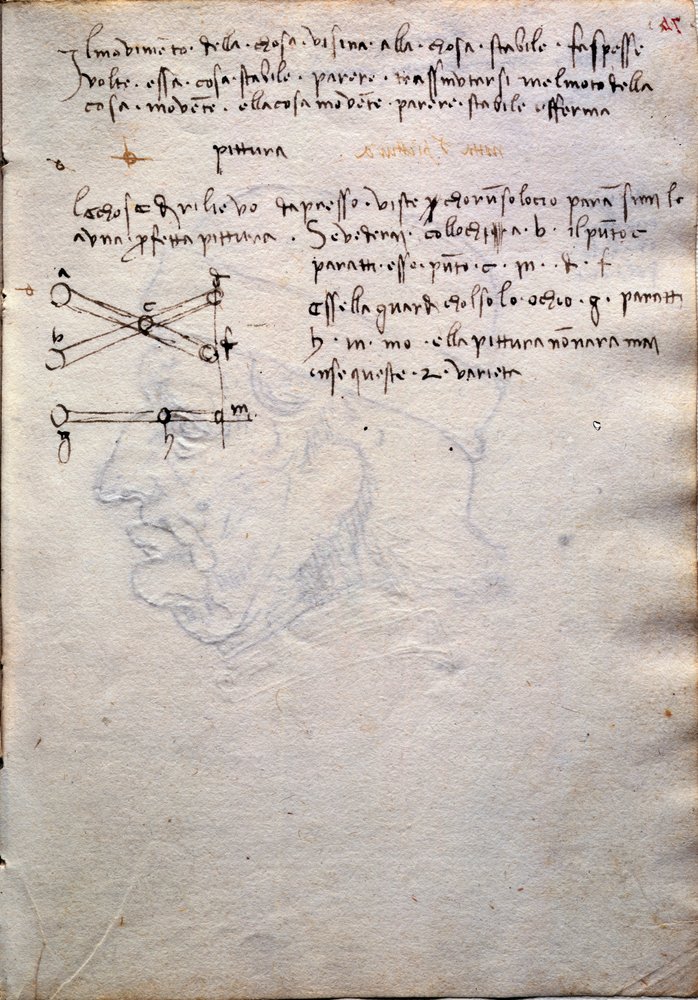 Il movimēto · della · chosa · visina · alla · chosa · stabile · fa spesse
volte · essa · cosa · stabile · parere · trassmutarsi nel moto della
cosa · movēte · ella cosa movēte · parere · stabile e fferma
pittura
le chose di rilievo da presso · viste chon ū solo ocio parā simile
a una perfetta pittura · Se vederai collochi a · b · il pūto c
paratti · esso · pūto · c · in · d · f
Essella guardi chol solo · ochio · g · paratti
h · in · mo · ella pittura nōn ara mai
in se queste · 2 · varieta
a
d
c
b
f
m
g
h